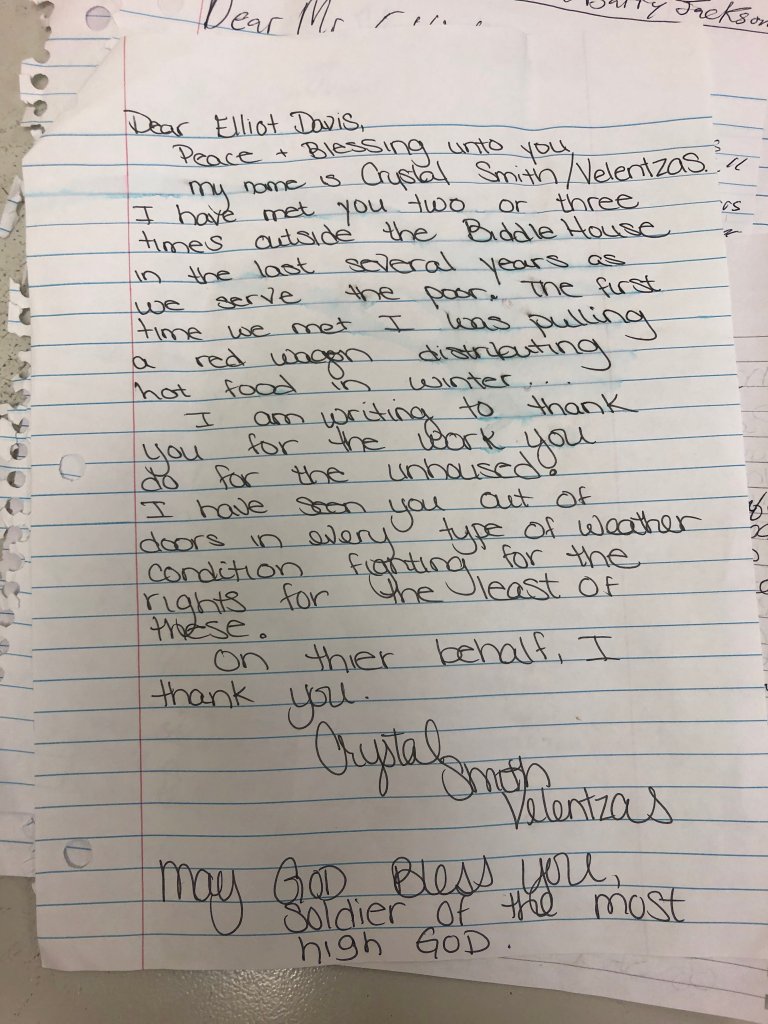 Dear Mr
Jackson
Dear Elliot Davis,
Peace + Blessing unto you
my name is Crystal Smith/Velentzas.
I have met you two or three
times outside the Biddle House
in the last several years as
we serve the poor. The first
time we met I was pulling
a red wagon distributing
hot food in winter....
I am writing to thank
you for the work you
do for the unhoused.
I have seen you out of
doors in every type of weather
condition fighting for the
rights for the least of
these.
On thier behalf, I
thank you.
Crystal
Smith
Velentzas
May GOD Bless you,
soldier of the most
high GOD.